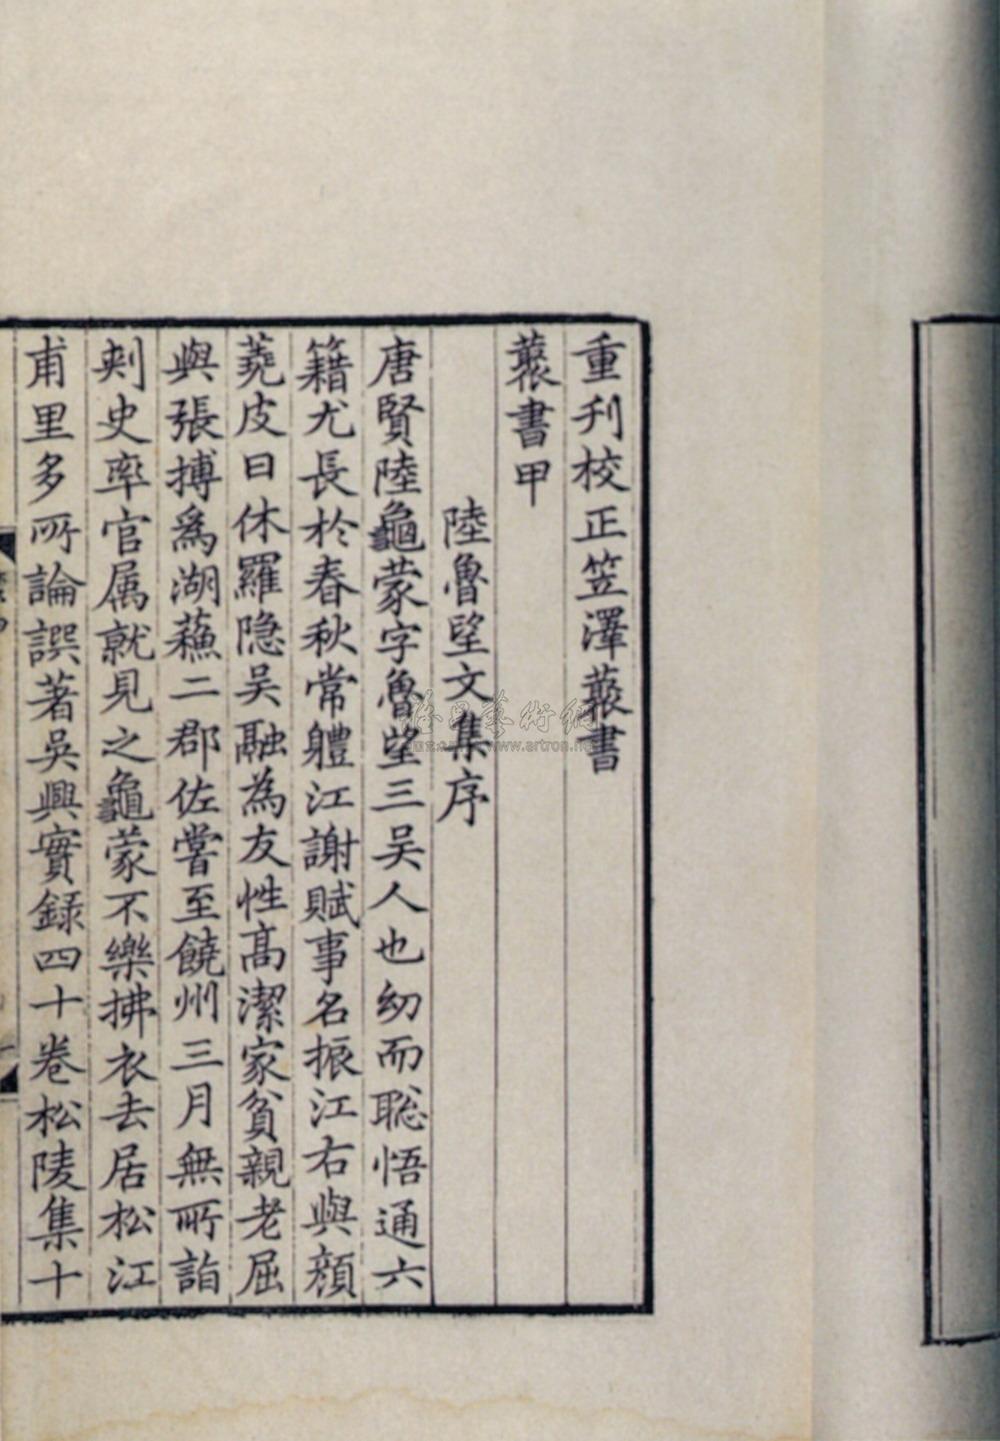 重刋校正笠澤藂書
藂書甲
陸魯望文集序
唐賢陸龜蒙字魯望三吴人也幼而聡悟通六
籍尤長於春秋常體江謝賦事名振江右與顔
蕘皮日休羅隐吴融為友性髙潔家貧親老屈
與張搏爲湖蘓二郡佐嘗至饒州三月無所詣
刾史率官属就見之龜蒙不樂拂衣去居松江
甫里多所論譔著吳興實録四十卷松陵集十
www.artron.net